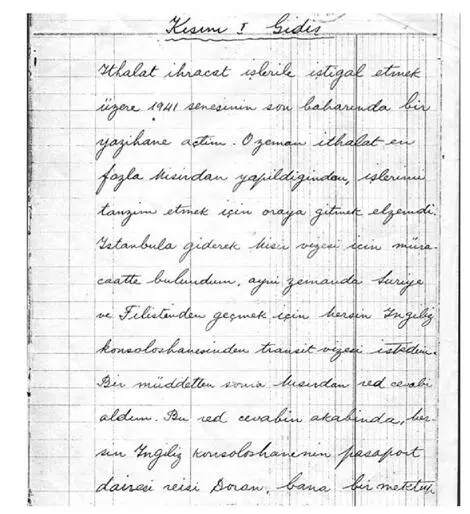 Kısım I Gidis
Ithalat ihracat işlerile iştigal etmek
üzere 1941 senesinin son baharında bir
yazihane açtım. O zeman ithalat en
fazla Mısırdan yapildigindan, işlerimi
tanzim etmek için oraya gitmek elzemdi.
Istanbula giderek Mısır vizesi için müra-
caatte bulundum, ayni zemanda Suriye
ve Filistinden geçmek için Mersin Ingiliz
konsoloshanesinden transit vizesi istedim.
Bir müddetten sonra Mısırdan red cevabi
aldım. Bu red cevabin akabinda, Mer-
sin Ingiliz konsoloshanenin pasaport
dairesi reisi Doran, bana bir mektup